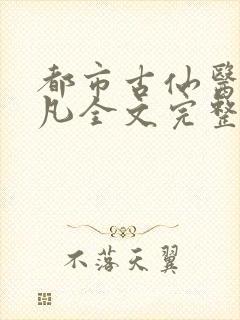 都市古仙醫
凡全文完整
不落天翼